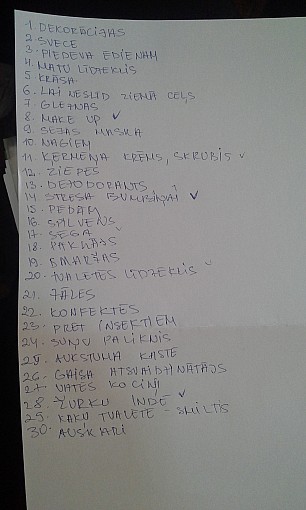 1. DEKORĀCIJAS
2. SVECE
3. PIEDEVA ĒDIENAM
4. MATU LĪDZEKLIS
5. KRĀSA
6. LAI NESLĪD ZIEMĀ CEĻŠ
7. GLEZNAS
8. MAKE UP ✓
9. SEJAS MASKA
10. NAGIEM
11. ĶERMEŅA KRĒMS, SKRUBIS ✓
12. ZIEPES
13. DEZODORANTS
14. STRESA BUMBIŅAI ✓
15. PĒDĀM
16. SPILVENS
17. SEGA ✓
18. PAKLĀJS
19. SMARŽAS
20. TUALETES LĪDZEKLIS ✓
21. ZĀLES
22. KONFEKTES
23. PRET INSEKTIEM
24. SUŅU PALIKNIS
25. AUKSTUMA KASTE
26. GAISA ATSVAIDZINĀTĀJS
27. VATES KOCIŅI
28. ŽURKU INDE ✓
29. KAĶU TUALETE - SMILTIS
30. AUSKARI